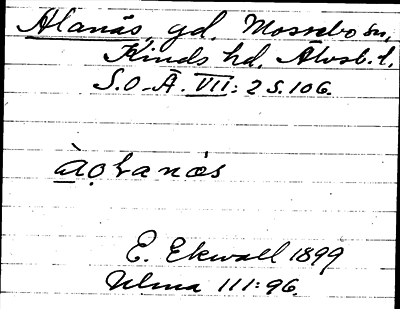 Alanäs, gd. Mossebo sn,
Kinds hd. Älvsb. l.
S.O.-Ä. VII: 2 S. 106.
E. Ekwall 1899
Ulma 111:96.